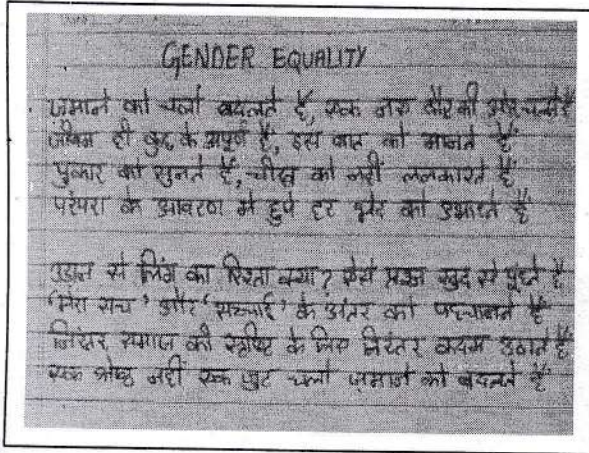 GENDER EQUALITY
ज़माने को चलो बदलते हैं, एक नए दौर की ओर चलते हैं
जीवन ही के अपूर्ण हैं, इस बात को मानते हैं
पुकार को सुनते हैं, चीख को नहीं ललकारते हैं
परंपरा के आवरण में छुपे हर भेद को उभारते हैं
उड़ान से लिंग का रिश्ता क्या? ऐसे प्रश्न खुद से पूछते हैं
'मेरा सच' और 'सच्चाई' के अंतर को पहचानते हैं
समाज की सृष्टि के लिए निरंतर कदम उठाते हैं
एक श्रेष्ठ नहीं एक जुट चलो ज़माने को बदलते हैं